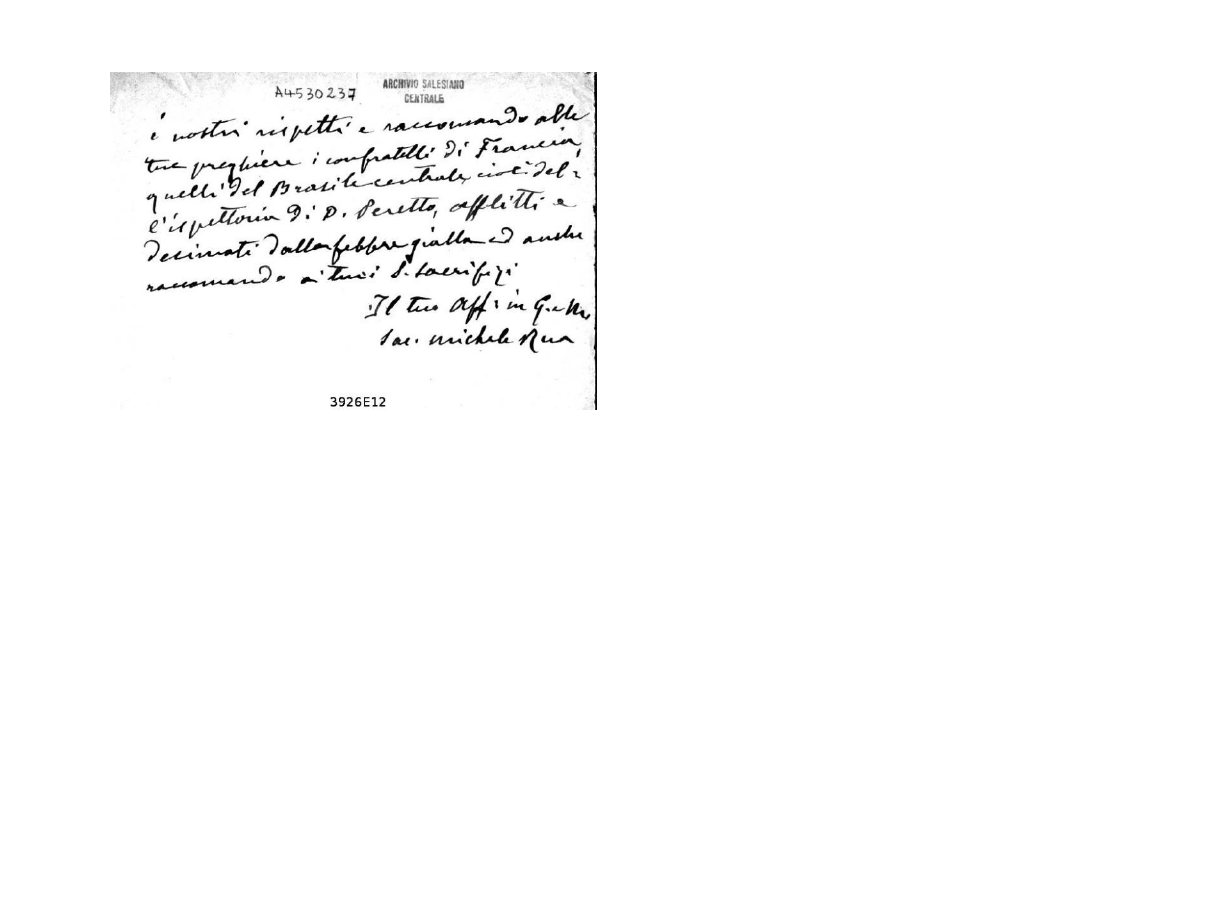 A4530237
ARCHIVIO SALESIANO
CENTRALE
i nostri rispetti e raccomando alle
tue preghiere i confratelli di Francia,
quelli del Brasile centrale, cioè del-
l'ispettoria di D. Peretto, afflitti e
decimati dalla febbre gialla ed anche
raccomando ai tuoi S. Sacrifizi
Il tuo Aff: in G. e M.
Sac. Michele Rua
3926E12